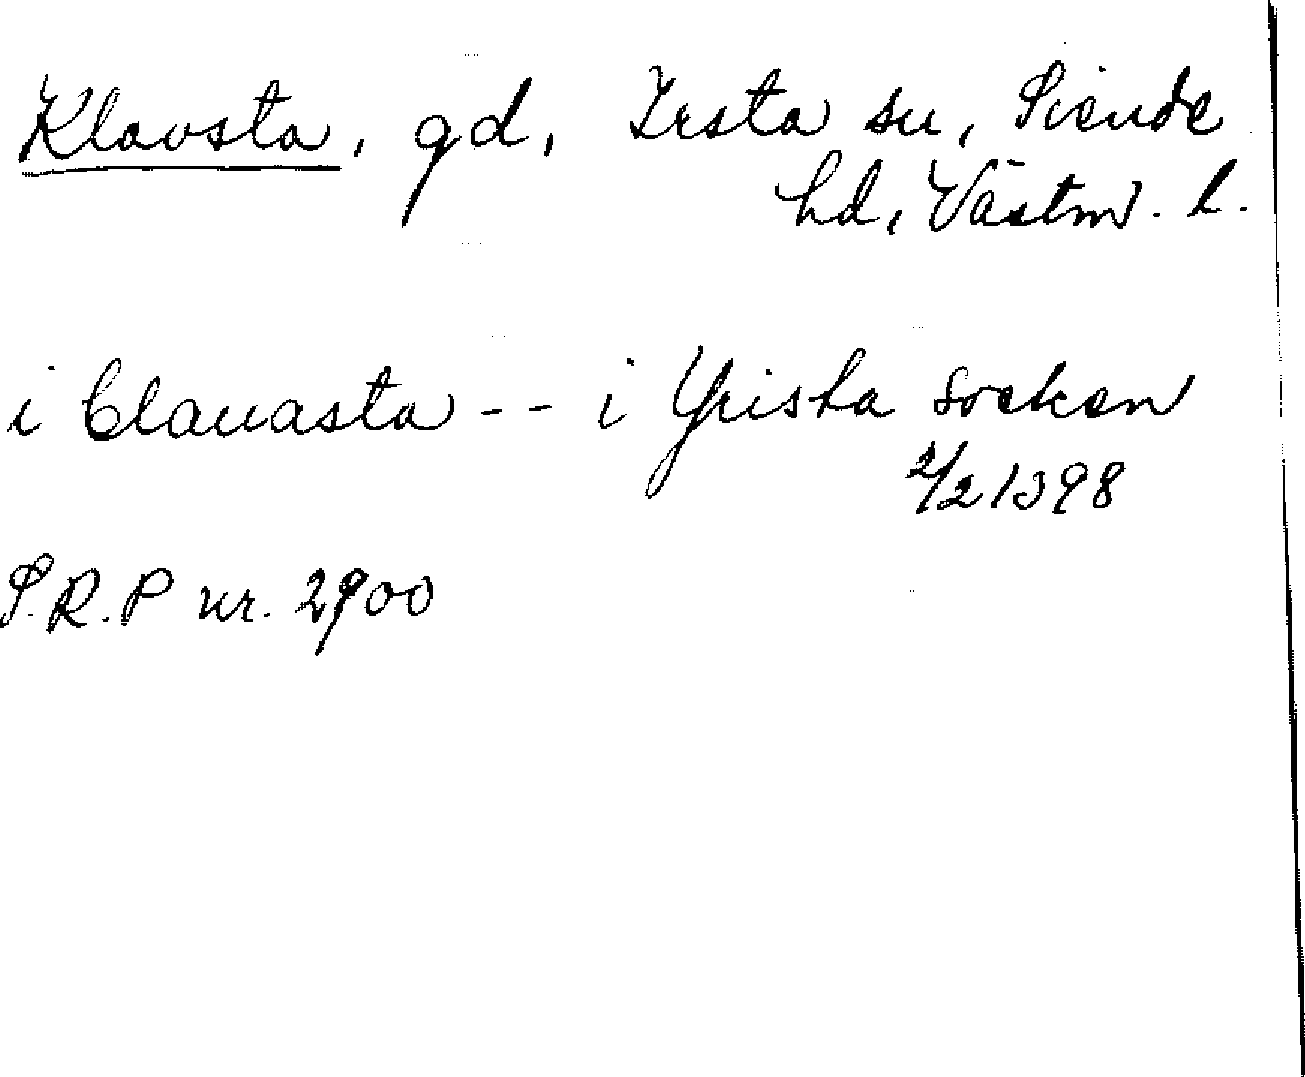 Klavsta, gd, Irsta sn, Siende
hd, Västm. l.
i Clauasta -- i Yrista socken
2/2 1398
S.R.P nr. 2900